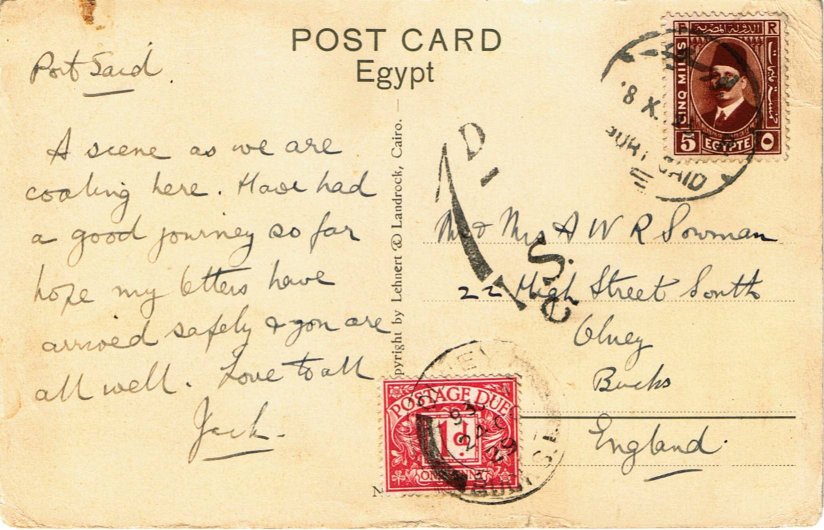 POST CARD
Egypt
Port Said.
A scene as we are
coaling here. Have had
a good journey so far
hope my letters have
arrived safely & you are
all well. Love to all
Jack.
Copyright by Lehnert & Landrock, Cairo.
الدولة المصرية
CINQ MILLS
5 EGYPTE ٥
8 X
PORT SAID
1D
Mr & Mrs A W R Sowman
22 High Street South
Olney
Bucks
England.
POSTAGE DUE
1d
ONE PENNY